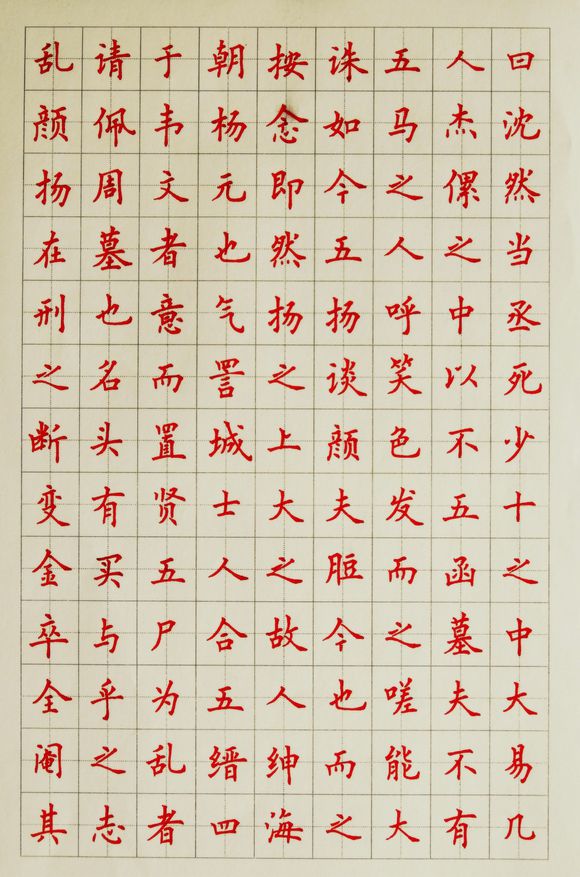 乱请于朝按诛五人曰
颜佩韦杨念如马杰沈
扬周文元即今之傫然
在墓者也然五人之当
刑也意气扬扬呼中丞
之名而詈之谈笑以死
断头置城上颜色不少
变有贤士大夫发五十
金买五人之脰而函之
卒与尸合故今之墓中
全乎为五人也嗟夫大
阉之乱缙绅而能不易
其志者四海之大有几